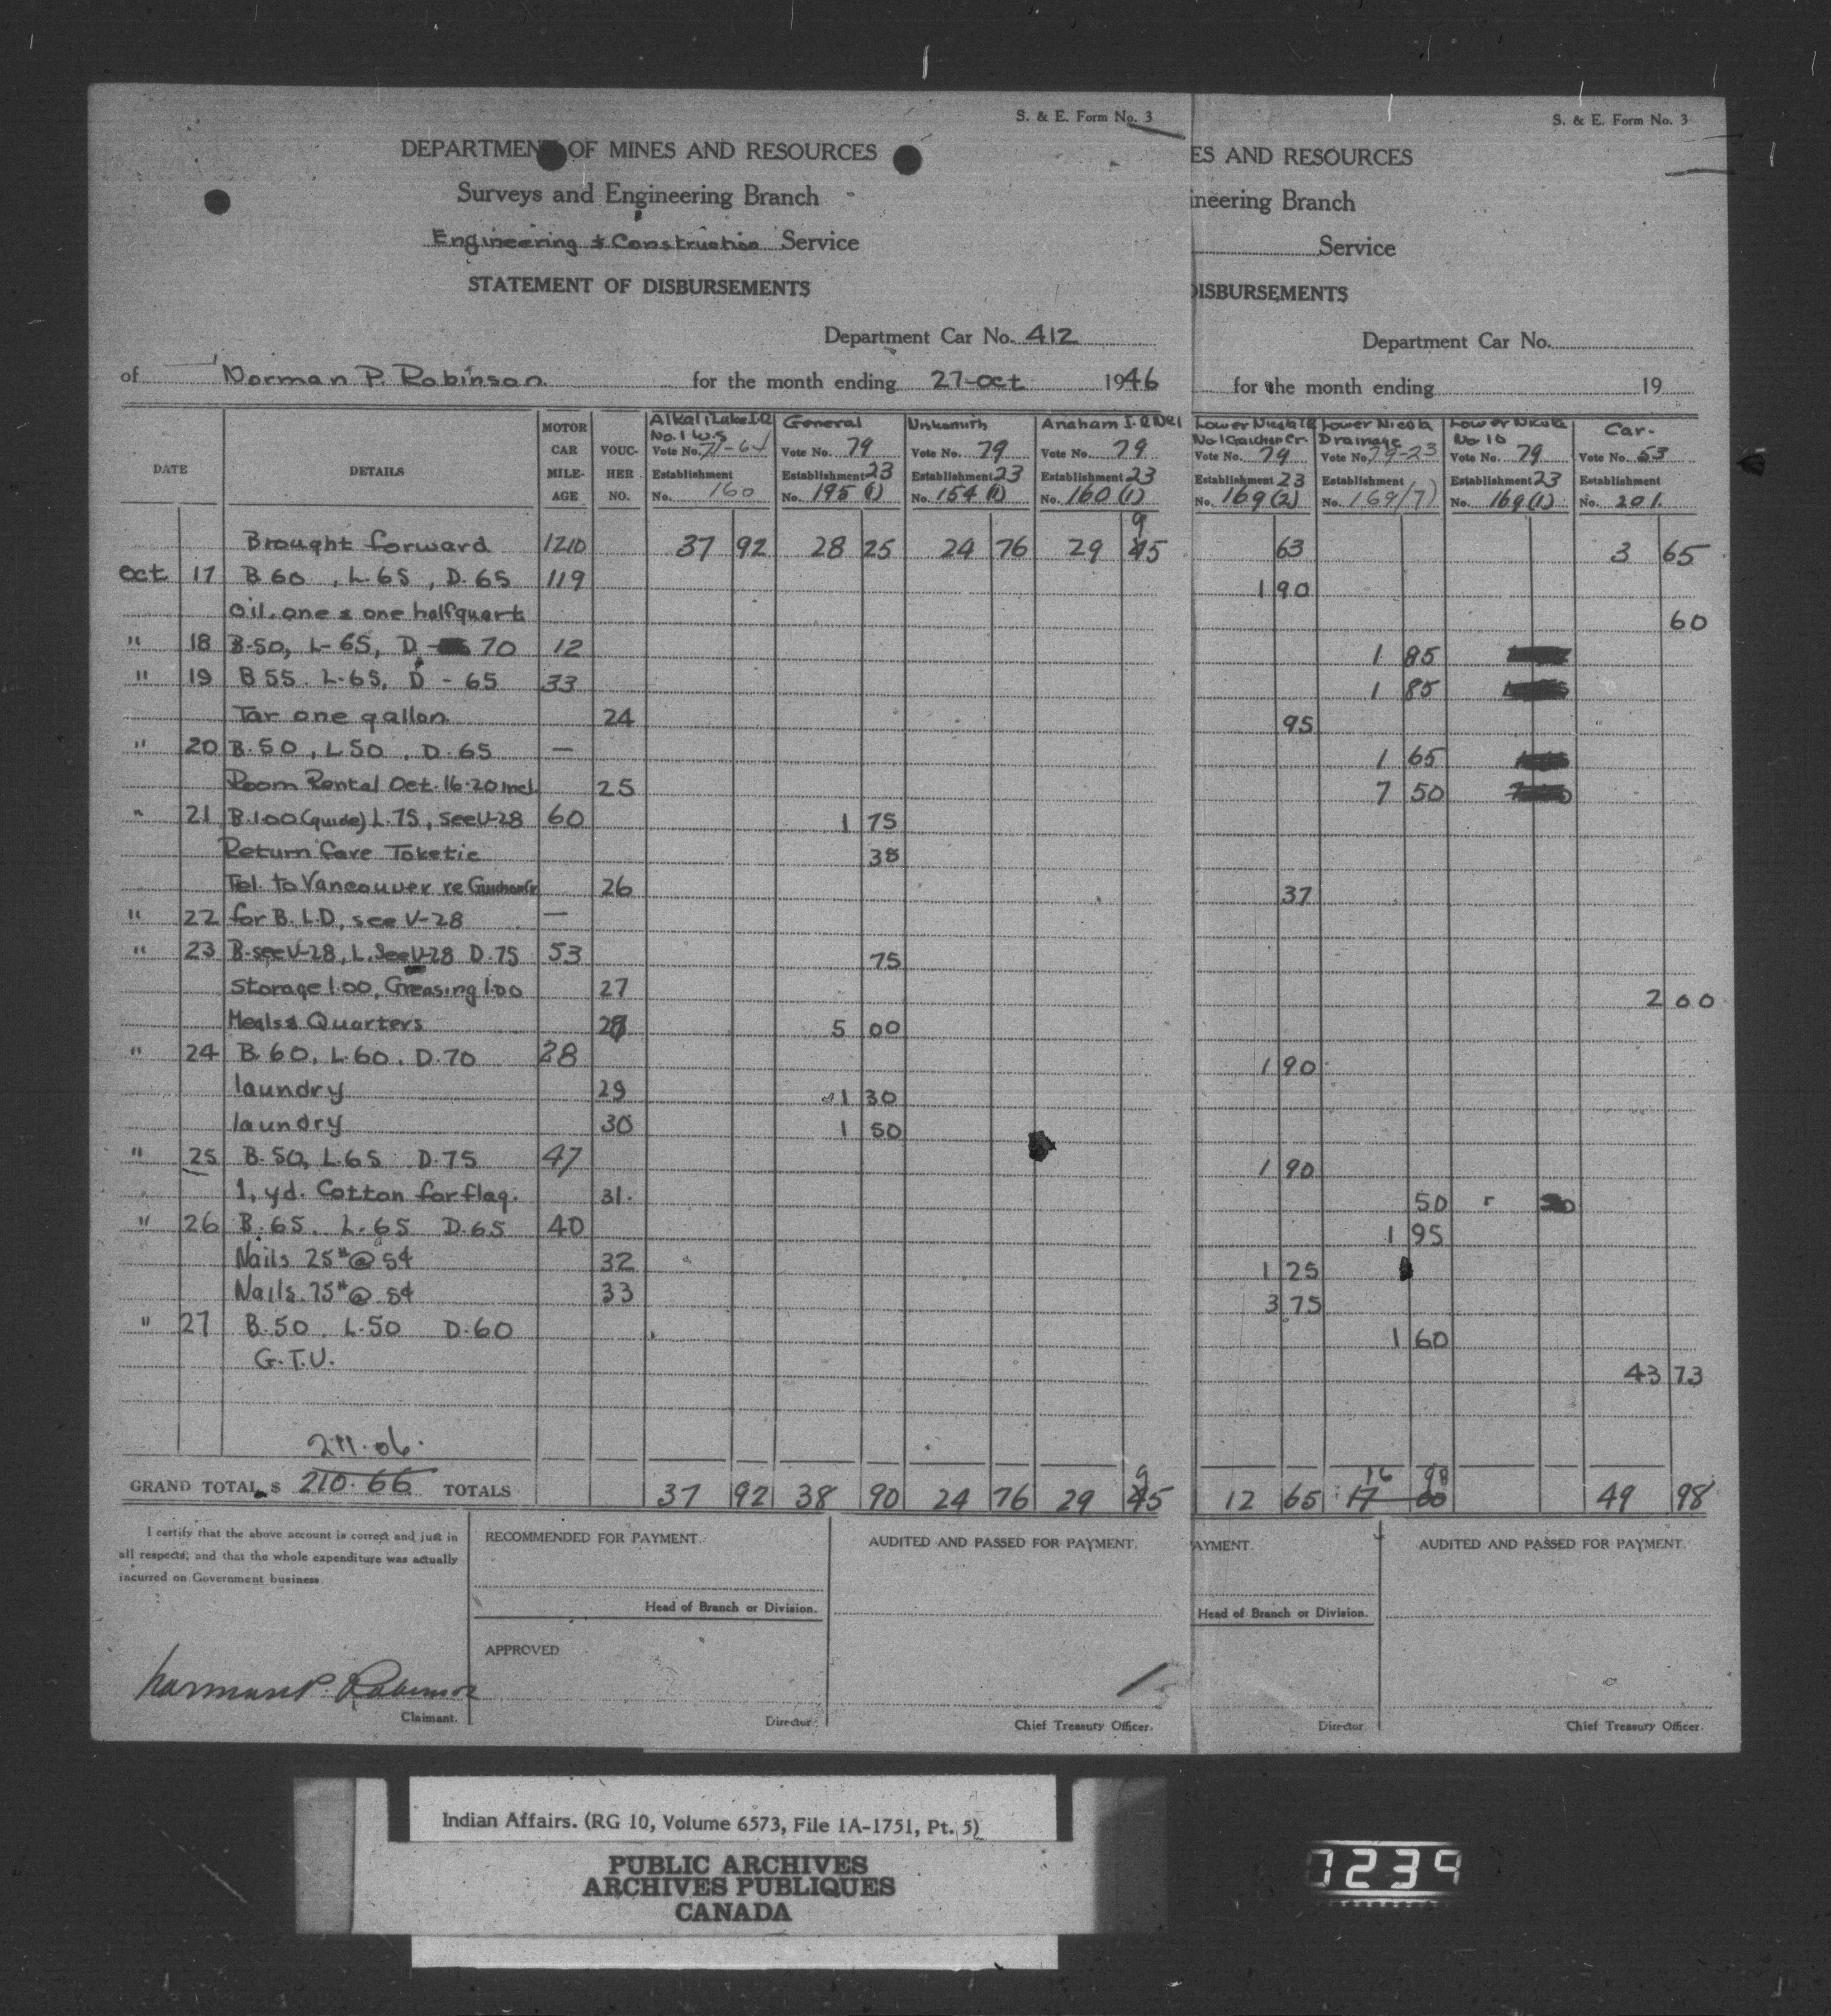 S. & E. Form No. 3
S. & E. Form No. 3
DEPARTMENT OF MINES AND RESOURCES
ES AND RESOURCES
Surveys and Engineering Branch
ineering Branch
Engineering & Construction Service
Service
STATEMENT OF DISBURSEMENTS
DISBURSEMENTS
Department Car No. 412
Department Car No.
of Norman P. Robinson for the month ending 27-Oct 1946
for the month ending 19
DATE DETAILS MOTOR CAR MILE-AGE VOUCHER NO.
Alkali Lake I.R. No. 1 W.S Vote No. Establishment No. 160
General Vote No. 79 Establishment 23 No. 195 (1)
Vote No. 79 Establishment 23 No. 154 (1)
Anaham I.R No 1 Vote No. 79 Establishment 23 No. 160 (1)
Lower Nicola IR No 1 Guichon Cr. Vote No. 79 Establishment 23 No. 169 (2)
Lower Nicola Drainage Vote No. 79-23 Establishment No. 169(7)
Lower Nicola No 10 Vote No. 79 Establishment 23 No. 169 (1)
Car. Vote No. 53 Establishment No. 201.
Brought forward 1210 37 92 28 25 24 76 29 95 63 3 65
Oct 17 B 60, L. 65, D. 65 119 1 90
Oil. one & one half quart 60
" 18 B-50, L-65, D - 70 12 1 85
" 19 B 55. L-65, D - 65 33 1 85
Tar one gallon 24 95
" 20 B.50, L 50, D.65 — 1 65
Room Rental Oct. 16-20 incl. 25 7 50
" 21 B.1.00 (guide) L.75, see V-28 60 1 75
Return fare Toketic 38
Tel. to Vancouver re Guichon Cr 26 37
" 22 for B.L.D, see V-28 —
" 23 B-see V-28, L. See V-28 D.75 53 75
Storage 1.00, Greasing 1.00 27 2 00
Meals & Quarters 28 5 00
" 24 B. 60, L.60. D.70 28 1 90
laundry 29 1 30
laundry 30 1 50
" 25 B.50, L.65 D.75 47 1 90
1, yd. Cotton for flag. 31. 50
" 26 B.65. L.65 D.65 40 1 95
Nails 25# @ 5¢ 32 1 25
Nails. 75# @ 5¢ 33 3 75
" 27 B.50. L.50 D.60 1 60
G.T.U. 43 73
211.06.
GRAND TOTAL $ 210.66 TOTALS 37 92 38 90 24 76 29 95 12 65 17 00 49 98
I certify that the above account is correct and just in
all respects; and that the whole expenditure was actually
incurred on Government business.
Norman P. Robinson
Claimant.
RECOMMENDED FOR PAYMENT.
Head of Branch or Division.
APPROVED
Director
AUDITED AND PASSED FOR PAYMENT.
Chief Treasury Officer.
AYMENT.
Head of Branch or Division.
Director
AUDITED AND PASSED FOR PAYMENT.
Chief Treasury Officer.
Indian Affairs. (RG 10, Volume 6573, File 1A-1751, Pt. 5)
PUBLIC ARCHIVES
ARCHIVES PUBLIQUES
CANADA
7239